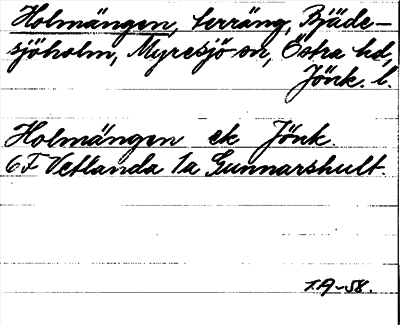 Holmängen, terräng, Bjäde-
sjöholm, Myresjö sn, Östra hd,
Jönk. l.
Holmängen ek Jönk.
6F Vetlanda 1a Gunnarshult.
T.A-58.